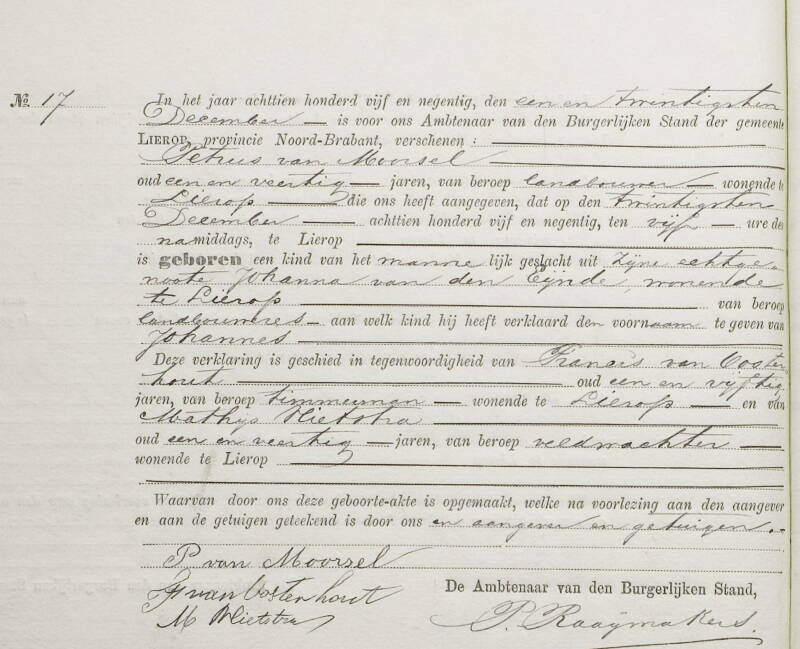 № 17
In het jaar achttien honderd vijf en negentig, den een en twintigsten
December — is voor ons Ambtenaar van den Burgerlijken Stand der gemeente
LIEROP, provincie Noord-Brabant, verschenen :
Petrus van Moorsel
oud een en veertig — jaren, van beroep landbouwer — wonende te
Lierop — die ons heeft aangegeven, dat op den twintigsten
December — achttien honderd vijf en negentig, ten vijf — ure des
namiddags, te Lierop
is geboren een kind van het mannelijk geslacht uit zijne echtge-
noote Johanna van den Eijnde wonende
te Lierop — van beroep
landbouwres — aan welk kind hij heeft verklaard den voornaam te geven van
Johannes
Deze verklaring is geschied in tegenwoordigheid van Francis van Ooster-
hout — oud een en vijftig
jaren, van beroep timmerman — wonende te Lierop — en van
Mathijs Vlietstra
oud een en veertig — jaren, van beroep veldwachter —
wonende te Lierop
Waarvan door ons deze geboorte-akte is opgemaakt, welke na voorlezing aan den aangever
en aan de getuigen geteekend is door ons en aangever en getuigen.
P van Moorsel
F van Oosterhout
M Vlietstra
De Ambtenaar van den Burgerlijken Stand,
P. Raaijmakers.